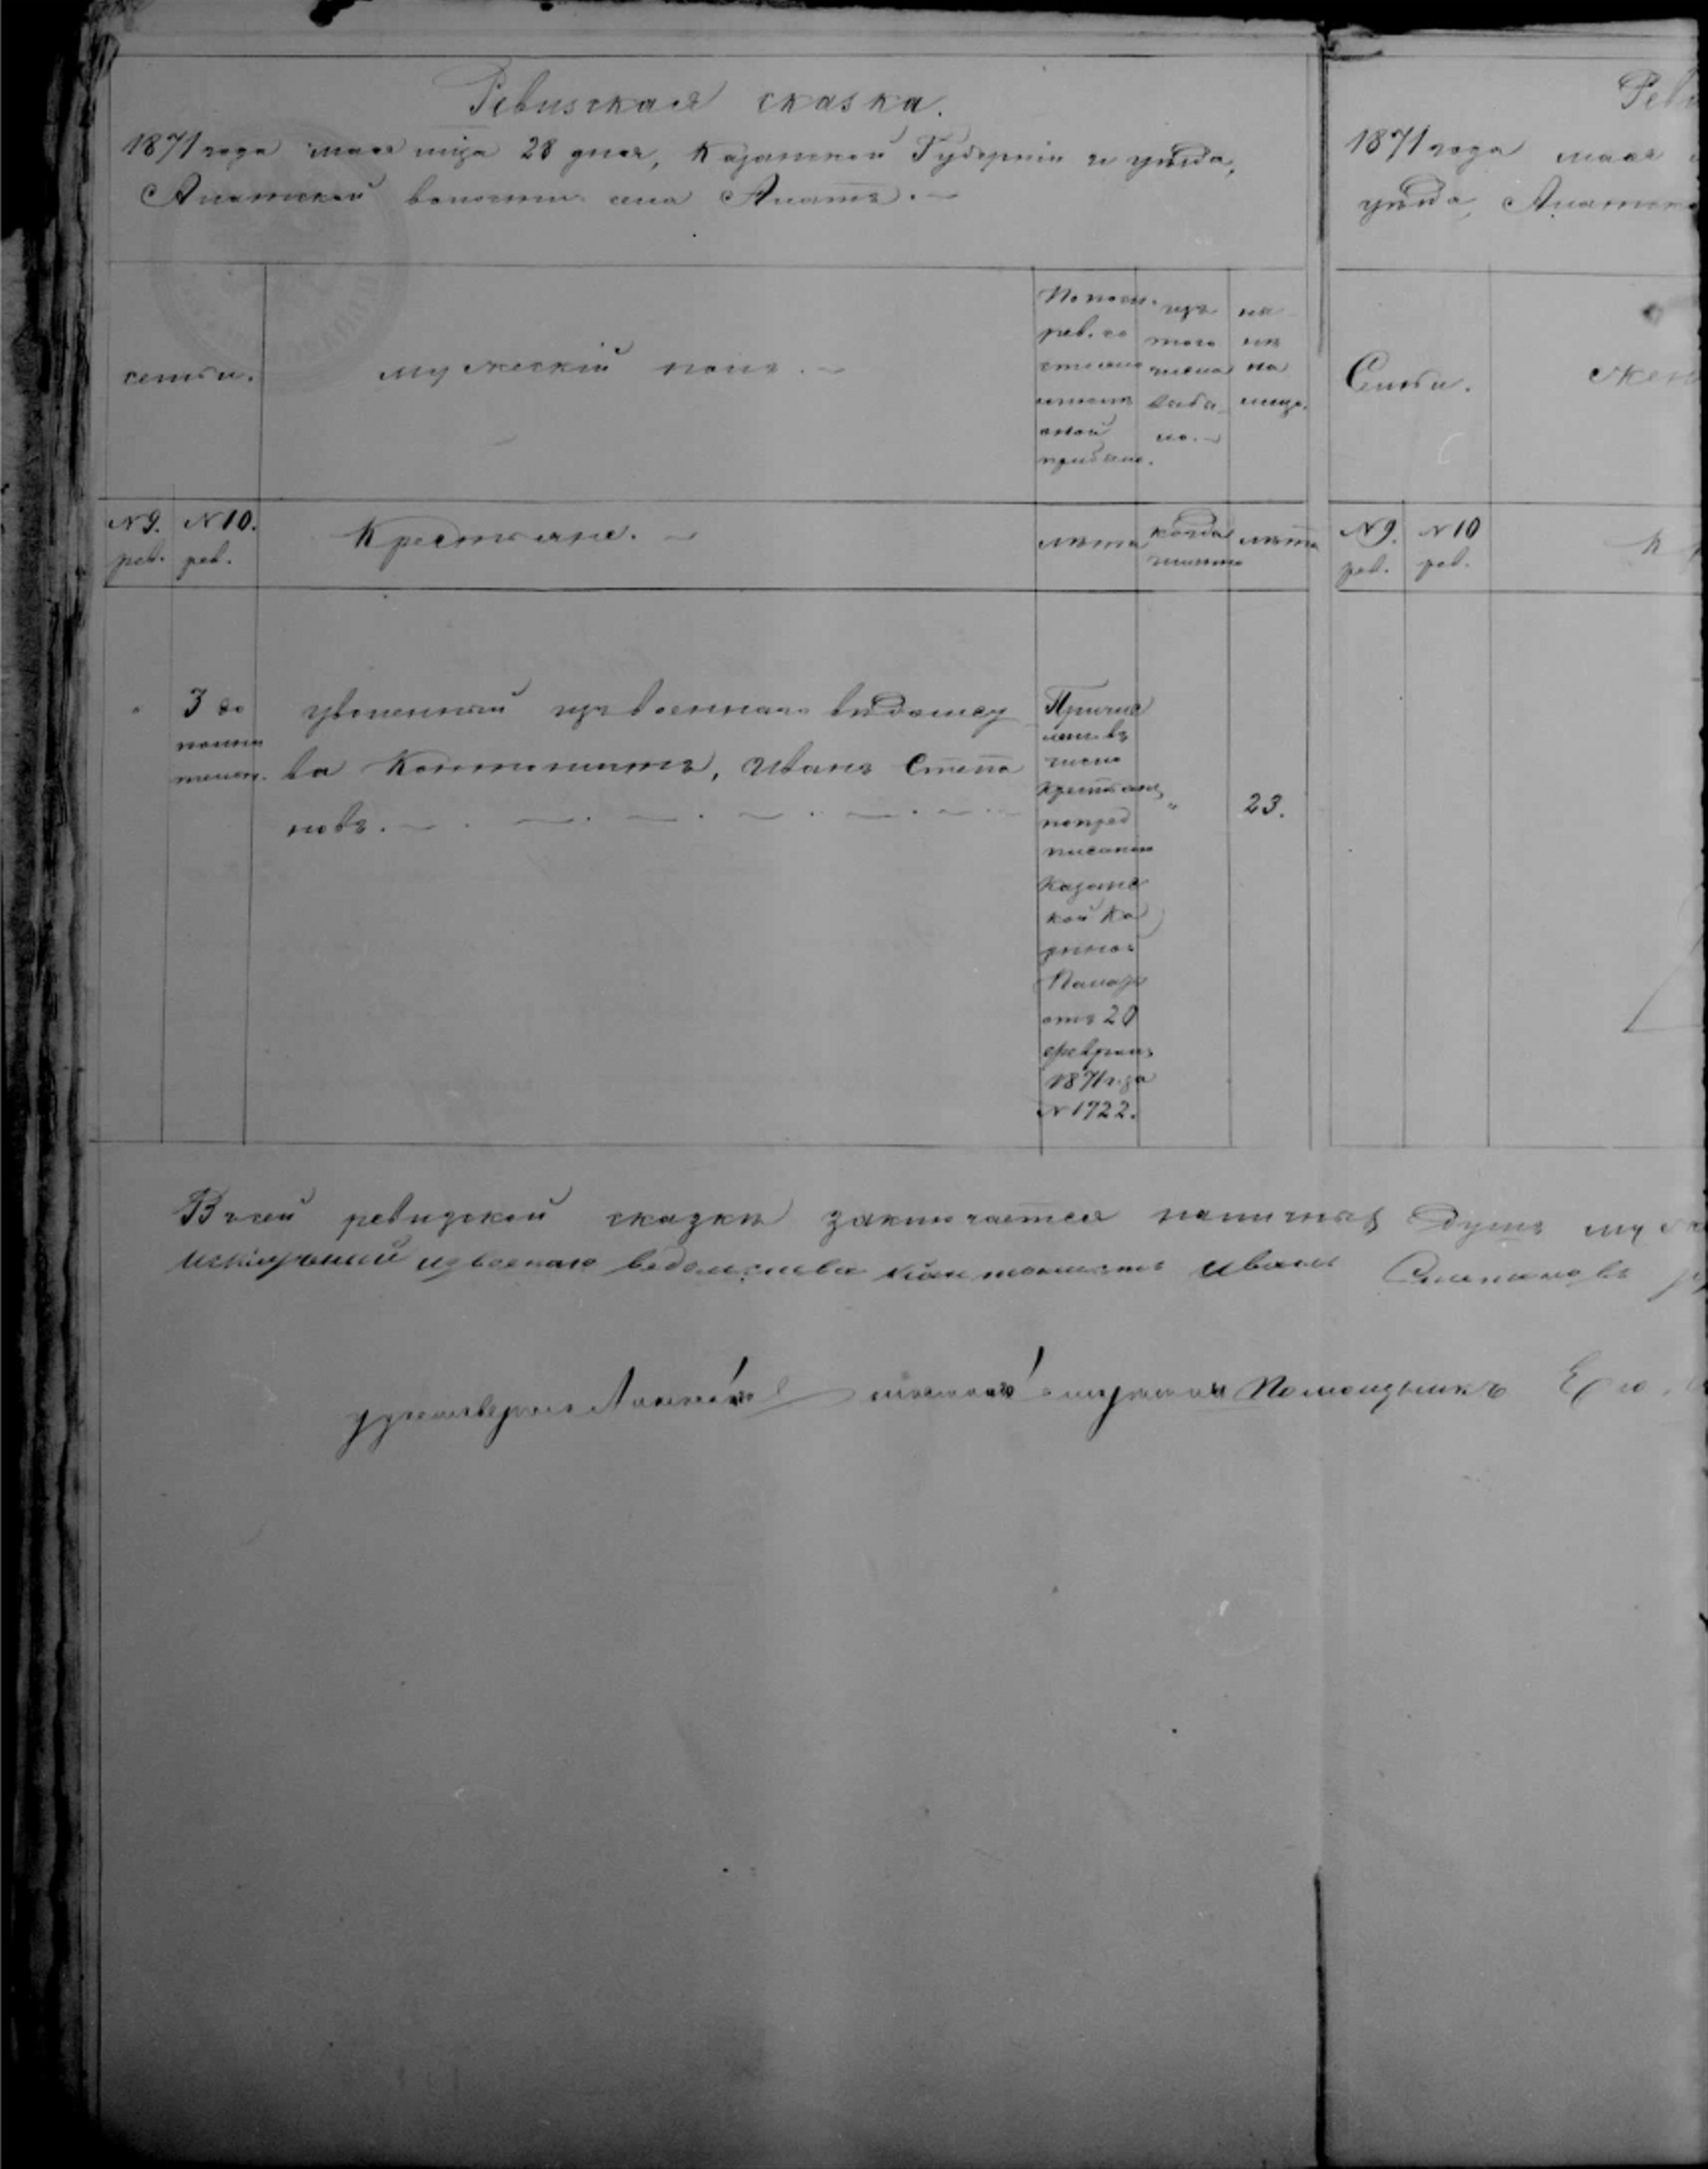 Ревизская сказка.
1871 года мая мца 28 дня, Казанской Губерніи и уѣзда,
Алатской волости села Алатъ.
семьи.
мужескій полъ.
По посл.
рев. со
стояло
и послѣ
оной
прибыло.
изъ
того
числа
выбы
ло.
нынѣ
на
лицо.
№ 9. рев.
№ 10. рев.
Крестьяне.
лѣта
когда именно
лѣта
"
3 до
полни
тельн.
уволенный изъ военнаго вѣдомст
ва Кантонистъ, Иванъ Степа
новъ.
Причис
ленъ въ
число
крестьянъ
по пред
писанію
Казанс
кой Ка
зенной
Палаты
отъ 20
февраля
1871 года
№ 1722.
"
23.
Въ сей ревизской сказкѣ заключается наличныхъ душъ муж
изъ военаго ведомства кантонистъ Иванъ Степановъ
Помощникъ Его
Реви
1871 года мая
уѣзда, Алатско
Семьи.
Жен
№ 9. рев.
№ 10 рев.
К